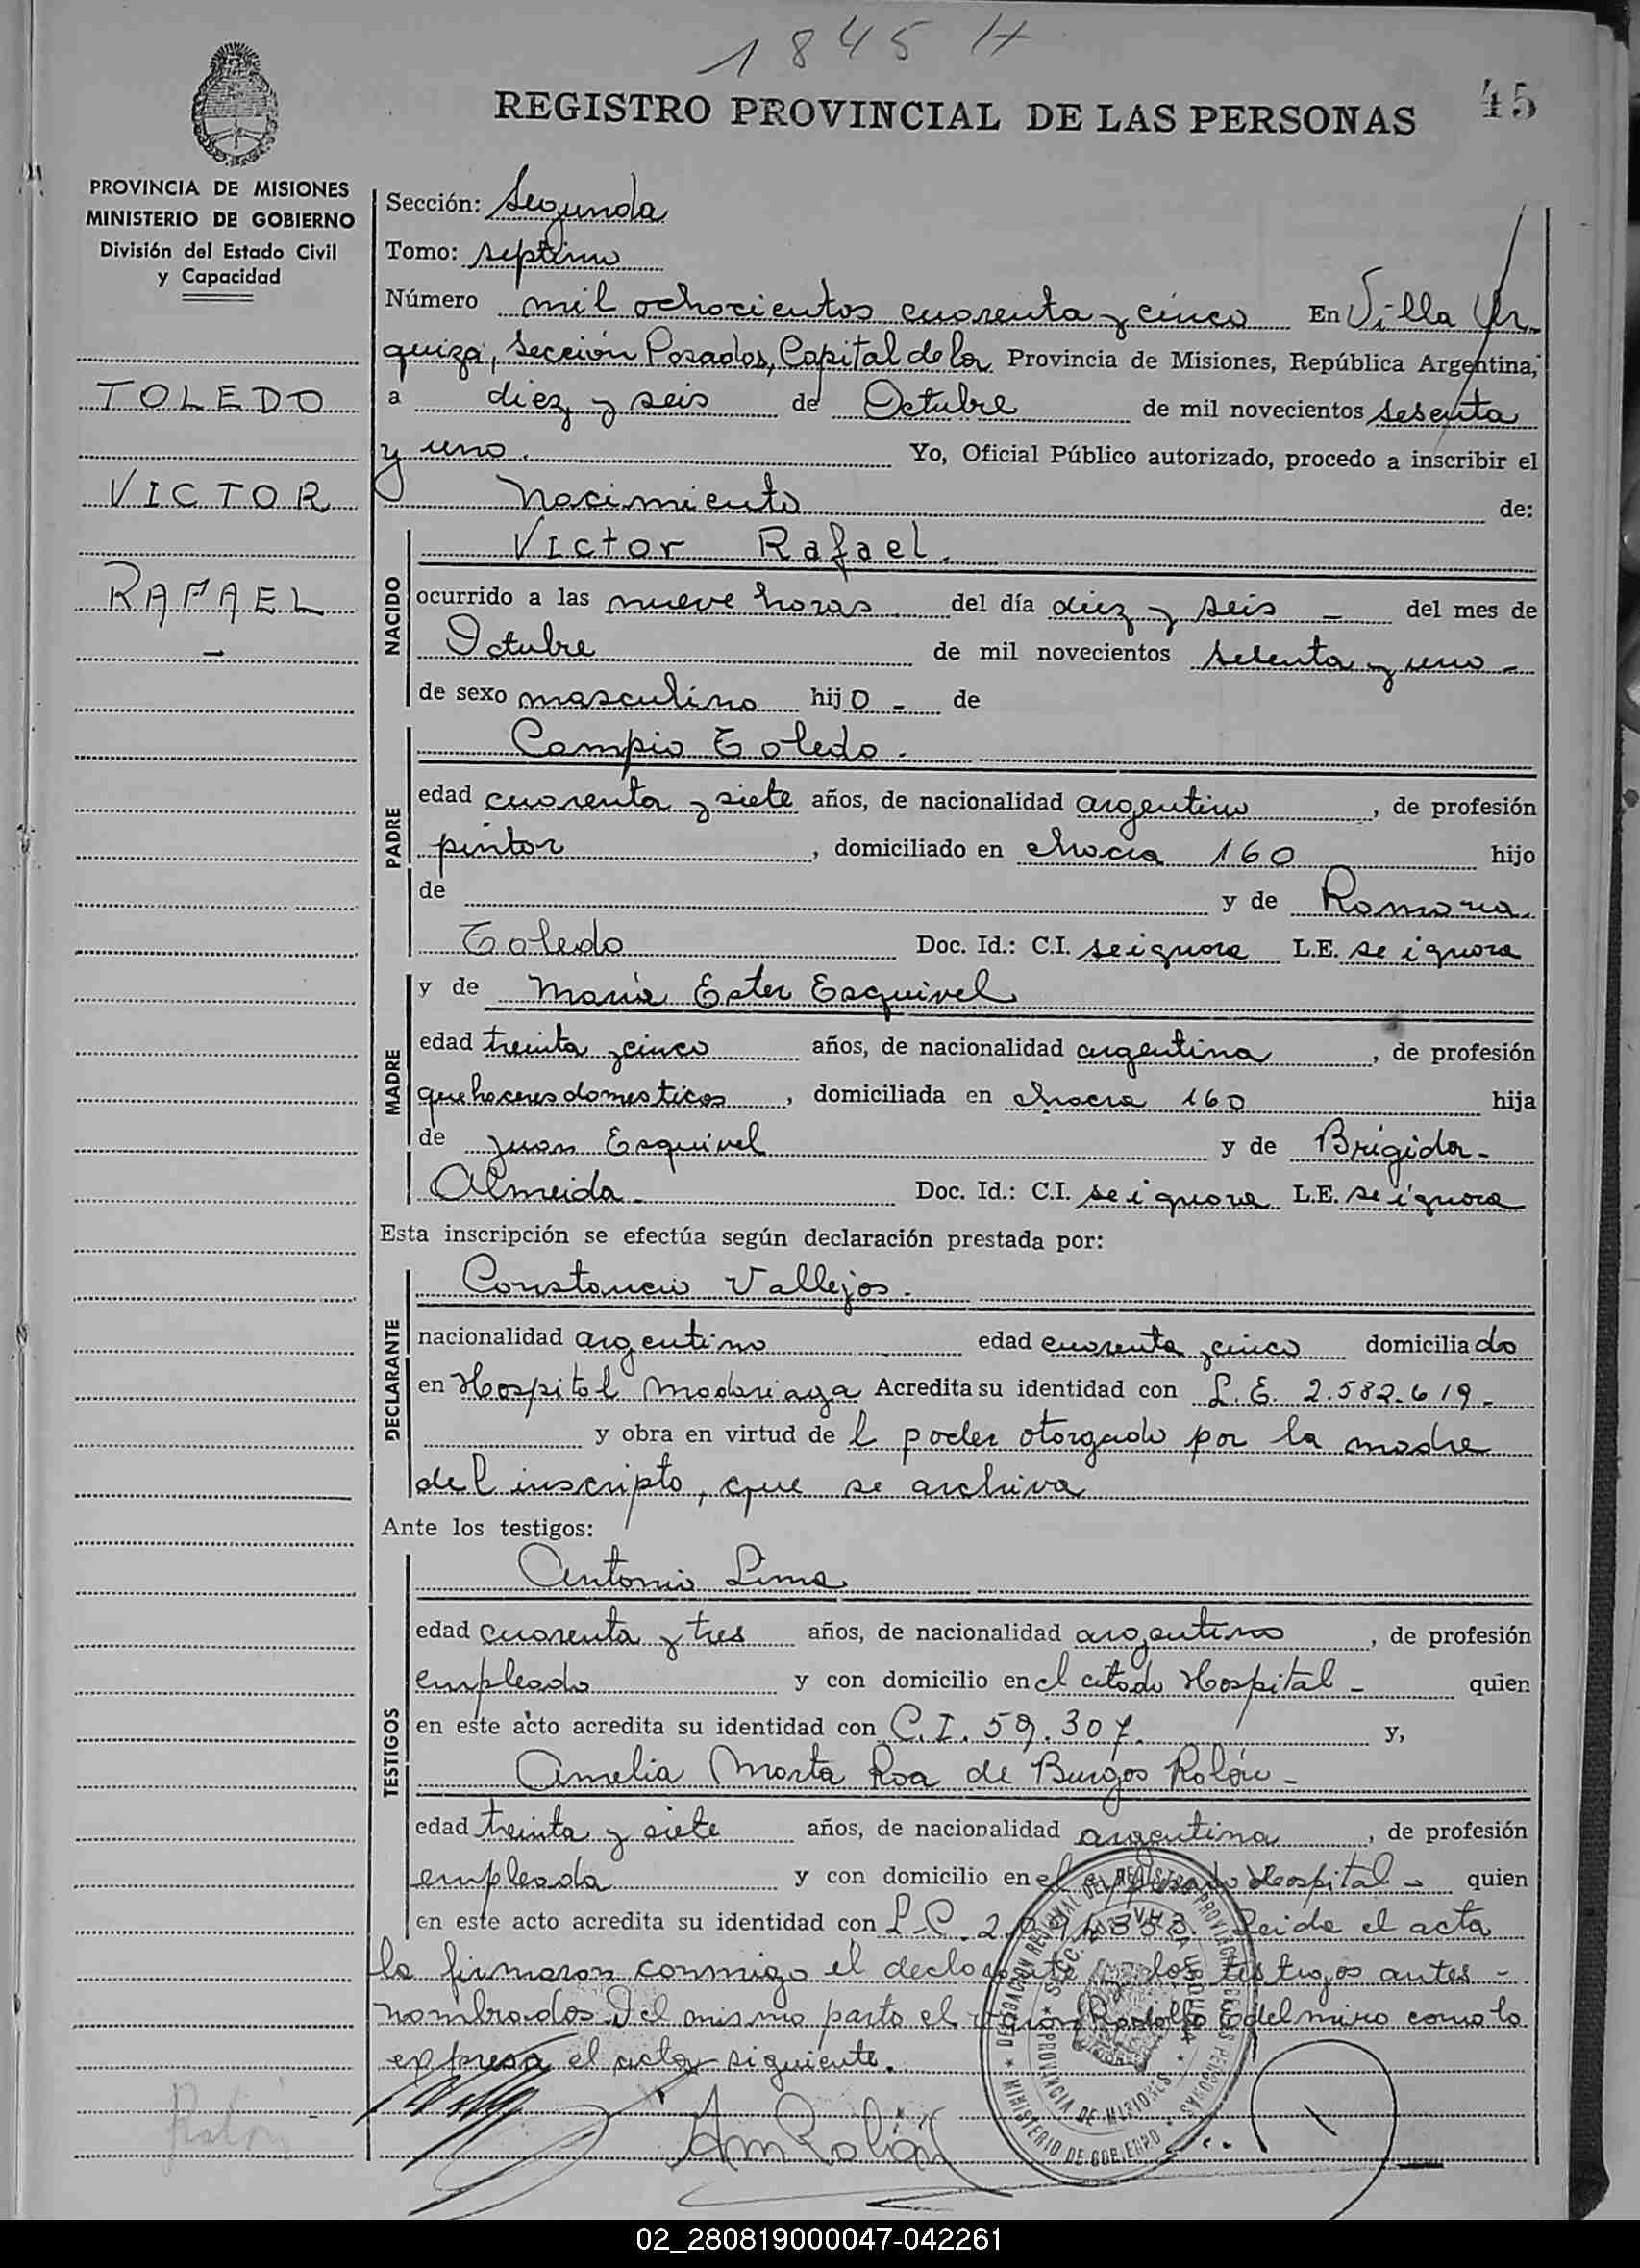 1845 H
45
REGISTRO PROVINCIAL DE LAS PERSONAS
PROVINCIA DE MISIONES
MINISTERIO DE GOBIERNO
División del Estado Civil
y Capacidad
TOLEDO
VICTOR
RAFAEL
Sección: Segunda
Tomo: septimo
Número mil ochocientos cuarenta y cinco En Villa Ur
quiza, Sección Posadas, Capital de la Provincia de Misiones, República Argentina,
a diez y seis de Octubre de mil novecientos sesenta
y uno. Yo, Oficial Público autorizado, procedo a inscribir el
Nacimiento de:
NACIDO
Victor Rafael.
ocurrido a las nueve horas del día diez y seis - del mes de
Octubre de mil novecientos sesenta y uno -
de sexo masculino hijo - de
PADRE
Campio Toledo.
edad cuarenta y siete años, de nacionalidad argentino, de profesión
pintor, domiciliado en chacra 160 hijo
de y de Romana
Toledo Doc. Id.: C.I. se ignora L.E. se ignora
MADRE
y de María Ester Esquivel
edad treinta y cinco años, de nacionalidad argentina, de profesión
quehaceres domesticos, domiciliada en chacra 160 hija
de Juan Esquivel y de Brígida -
Almeida - Doc. Id.: C.I. se ignora L.E. se ignora
Esta inscripción se efectúa según declaración prestada por:
DECLARANTE
Constancio Vallejos.
nacionalidad argentino edad cuarenta y cinco domiciliado
en Hospital Madariaga Acredita su identidad con L.E. 2.582.619 -
y obra en virtud del poder otorgado por la madre
del inscripto, que se archiva
Ante los testigos:
TESTIGOS
Antonio Lima
edad cuarenta y tres años, de nacionalidad argentino, de profesión
empleado y con domicilio en el citado Hospital - quien
en este acto acredita su identidad con C.I. 59.307. y,
Amelia Marta Roa de Burgos Rolón -
edad treinta y siete años, de nacionalidad argentina, de profesión
empleada y con domicilio en el Hospital - quien
en este acto acredita su identidad con L.C. Leida el acta
la firmaron conmigo el declarante y los testigos antes -
nombrados. Del mismo parto el varón Rodolfo Edelmiro como lo
expresa el acta siguiente.
DELEGACION REGIONAL DEL REGISTRO PROVINCIAL DE LAS PERSONAS
MINISTERIO DE GOBIERNO
SECC. VILLA URQUIZA
PROVINCIA DE MISIONES
Rolón
02_280819000047-042261